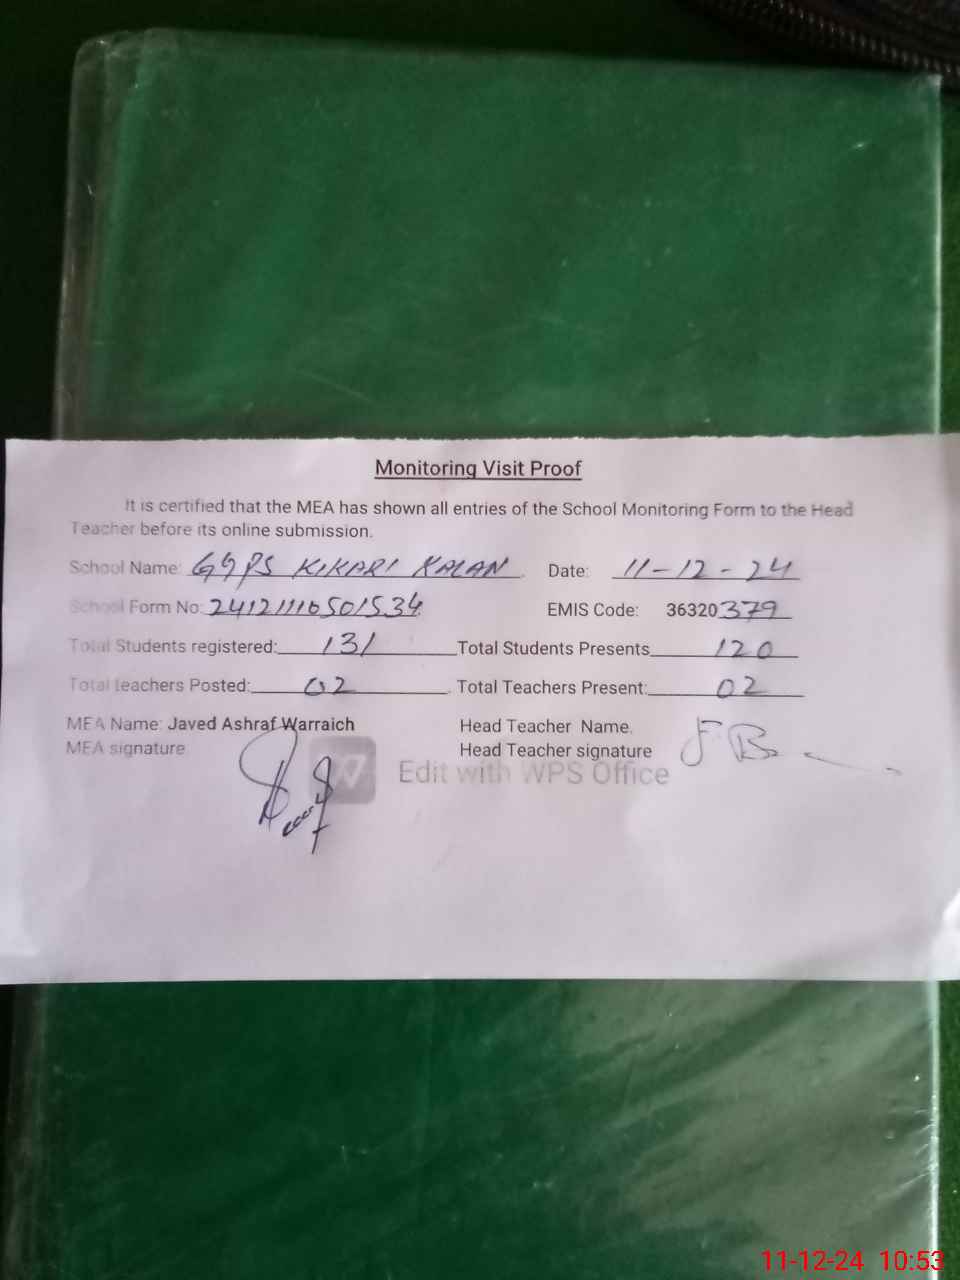 Monitoring Visit Proof
It is certified that the MEA has shown all entries of the School Monitoring Form to the Head
Teacher before its online submission.
School Name: GGPS KIKARI KALAN Date: 11-12-24
School Form No: 241211110501534 EMIS Code: 36320379
Total Students registered: 131 Total Students Presents 120
Total teachers Posted: 02 Total Teachers Present: 02
MEA Name: Javed Ashraf Warraich Head Teacher Name.
MEA signature Head Teacher signature
Edit with WPS Office
11-12-24 10:53